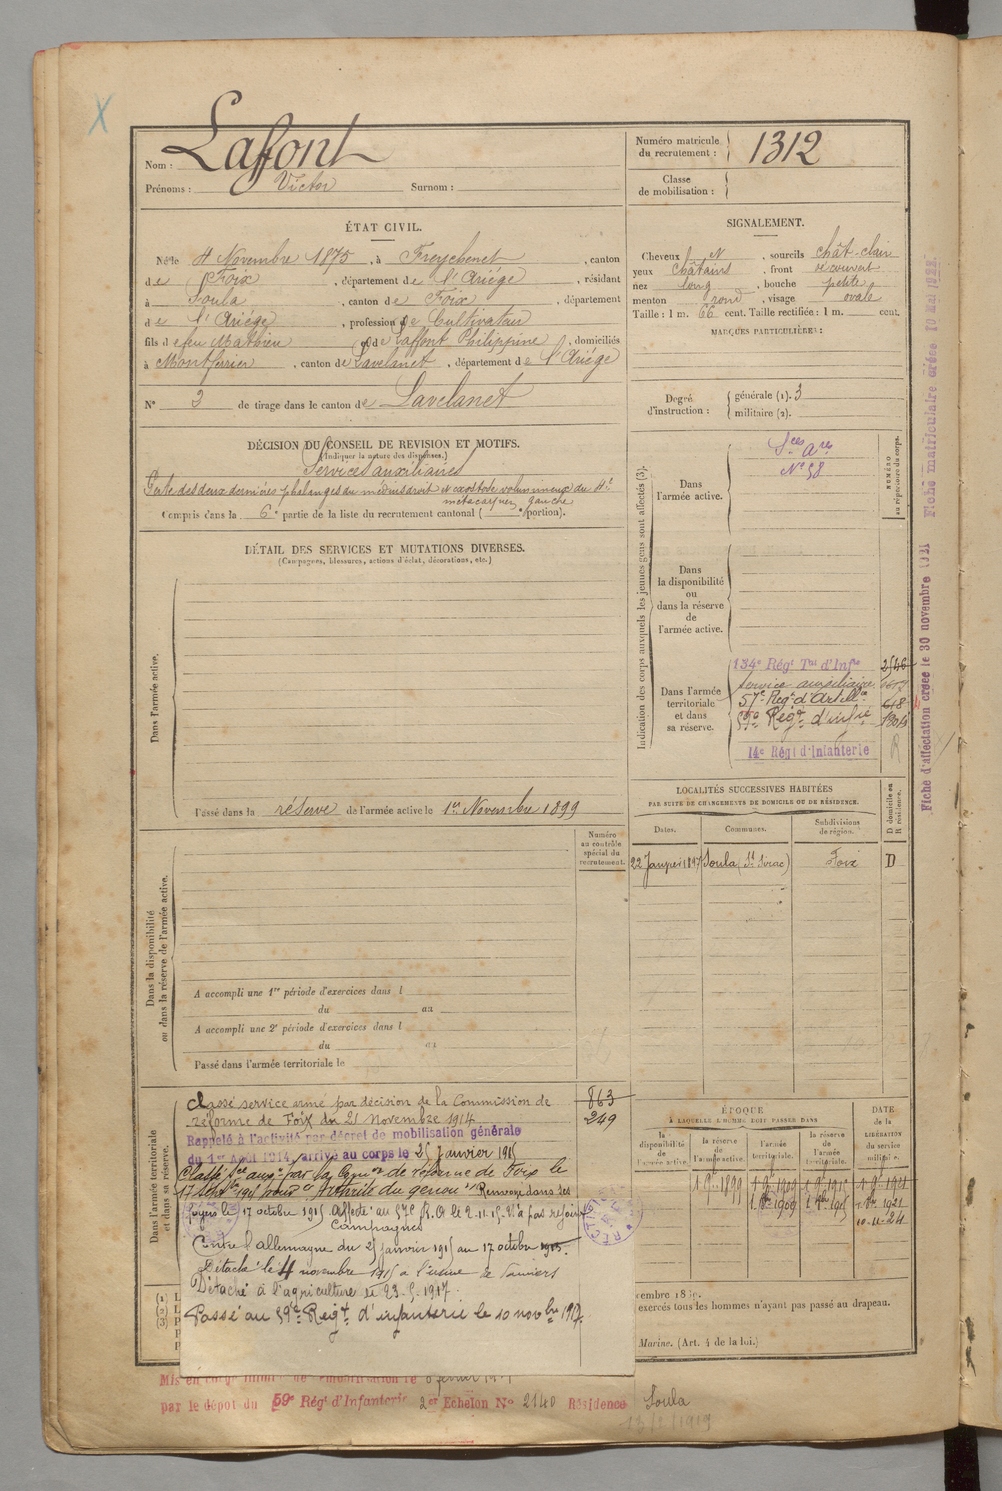 Nom : Laffont
Prénoms : Victor Surnom :
Numéro matricule du recrutement : 1312
Classe de mobilisation :
ÉTAT CIVIL.
Né le 4 Novembre 1875, à Freychenet, canton
de Foix, département de l'Ariège, résidant
à Soula, canton de Foix, département
de l'Ariège, profession de Cultivateur
fils de feu Mathieu et de Laffont Philippine, domiciliés
à Montferrier, canton de Lavelanet, département de l'Ariège
N° 3 de tirage dans le canton de Lavelanet
DÉCISION DU CONSEIL DE REVISION ET MOTIFS.
(Indiquer la nature des dispenses.)
Services auxiliaires
Perte des deux dernières phalanges du médius droit et exostose volumineuse du 4e
métacarpien gauche
Compris dans la 6e partie de la liste du recrutement cantonal ( portion).
SIGNALEMENT.
Cheveux N, sourcils chât-clair
yeux châtains, front recouvert
nez long, bouche petite
menton rond, visage ovale
Taille : 1 m. 66 cent. Taille rectifiée : 1 m. cent.
MARQUES PARTICULIÈRES :
Degré d'instruction : générale (1). 3
militaire (2).
DÉTAIL DES SERVICES ET MUTATIONS DIVERSES.
(Campagnes, blessures, actions d'éclat, décorations, etc.)
Dans l'armée active.
Passé dans la réserve de l'armée active le 1er Novembre 1899
Indication des corps auxquels les jeunes gens sont affectés (3).
NUMÉRO au répertoire du corps.
Dans l'armée active.
Sces Ares
N° 58
Dans la disponibilité ou dans la réserve de l'armée active.
Dans l'armée territoriale et dans sa réserve.
134e Régt Tal d'Infie
Service auxiliaire
57e Regt d'Artellie
59e Regt d'infie
14e Régt d'Infanterie
LOCALITÉS SUCCESSIVES HABITÉES
PAR SUITE DE CHANGEMENTS DE DOMICILE OU DE RÉSIDENCE.
Dates. Communes. Subdivisions de région. D domicile ou R résidence.
22 Janvier 1897 Soula (St Sirac) Foix D
Numéro au contrôle spécial du recrutement.
Dans la disponibilité ou dans la réserve de l'armée active.
A accompli une 1re période d'exercices dans l
du au
A accompli une 2e période d'exercices dans l
du au
Passé dans l'armée territoriale le
Dans l'armée territoriale et dans sa réserve.
863
249
Classé service armé par décision de la Commission de
réforme de Foix du 21 Novembre 1914
Rappelé à l'activité par décret de mobilisation générale
du 1er Août 1914, arrivé au corps le 25 Janvier 1915
Classé Sce auxe par la Comon de réforme de Foix le
17 Septbre 1915 pour "Arthrite du genou" Renvoyé dans ses
foyers le 17 octobre 1915 Affecté au 57e R.A le 2-11-15. N'a pas rejoint
Campagnes
Contre l'allemagne du 25 janvier 1915 au 17 octobre 1915.
Détaché le 4 novembre 1915 à l'usine de Pamiers
Détaché à l'agriculture le 23-5-1917.
Passé au 59e Regt d'infanterie le 10 novbre 1917.
ÉPOQUE
À LAQUELLE L'HOMME DOIT PASSER DANS
la disponibilité de l'armée active. la réserve de l'armée active. l'armée territoriale. la réserve de l'armée territoriale. DATE DE LA LIBÉRATION du service militaire.
1 9bre 1899 1 9bre 1909 1 9bre 1915 1 9bre 1921
1 8bre 1909 1 8bre 1915 1 8bre 1921
10-11-24
exercés tous les hommes n'ayant pas passé au drapeau.
Marine. (Art. 4 de la loi.)
par le dépôt du 59e Régt d'Infanterie 2er Echelon N° 2140 Résidence Soula
13/2/1919
Fiche d'affectation créée le 30 novembre 1921 Fiche matriculaire créée 10 Mai 1922.